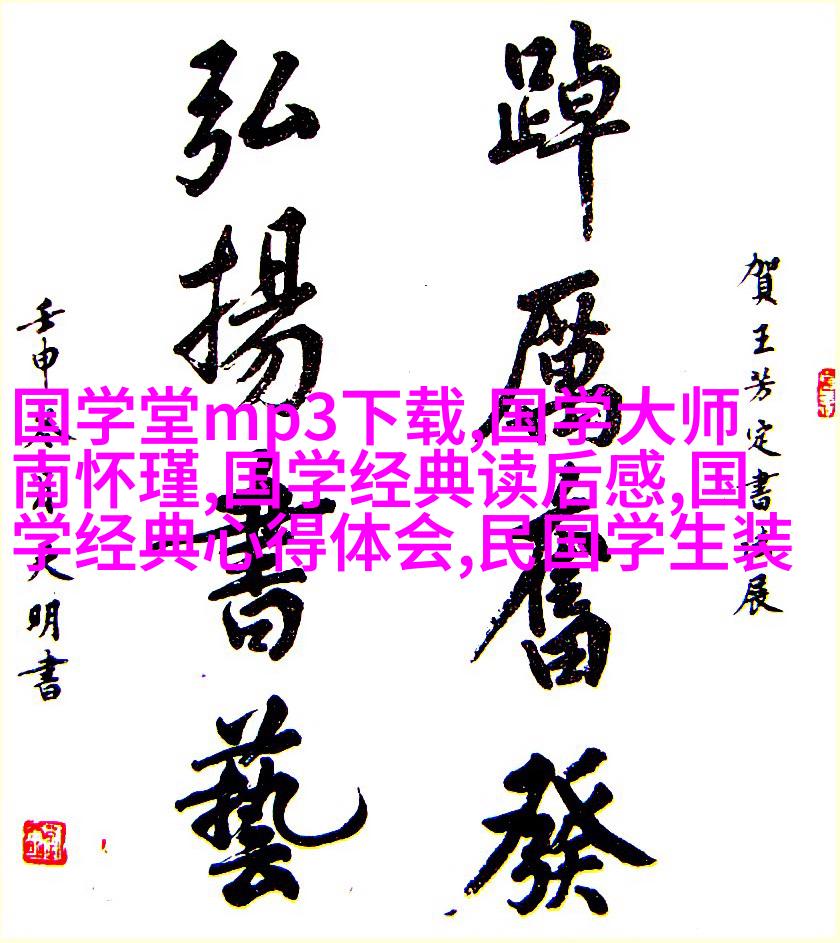 賀王芳定書展
踔厲奮發
弘揚書藝
壬申天明書
国学堂mp3下载,国学大师
南怀瑾,国学经典读后感,国
学经典心得体会,民国学生装